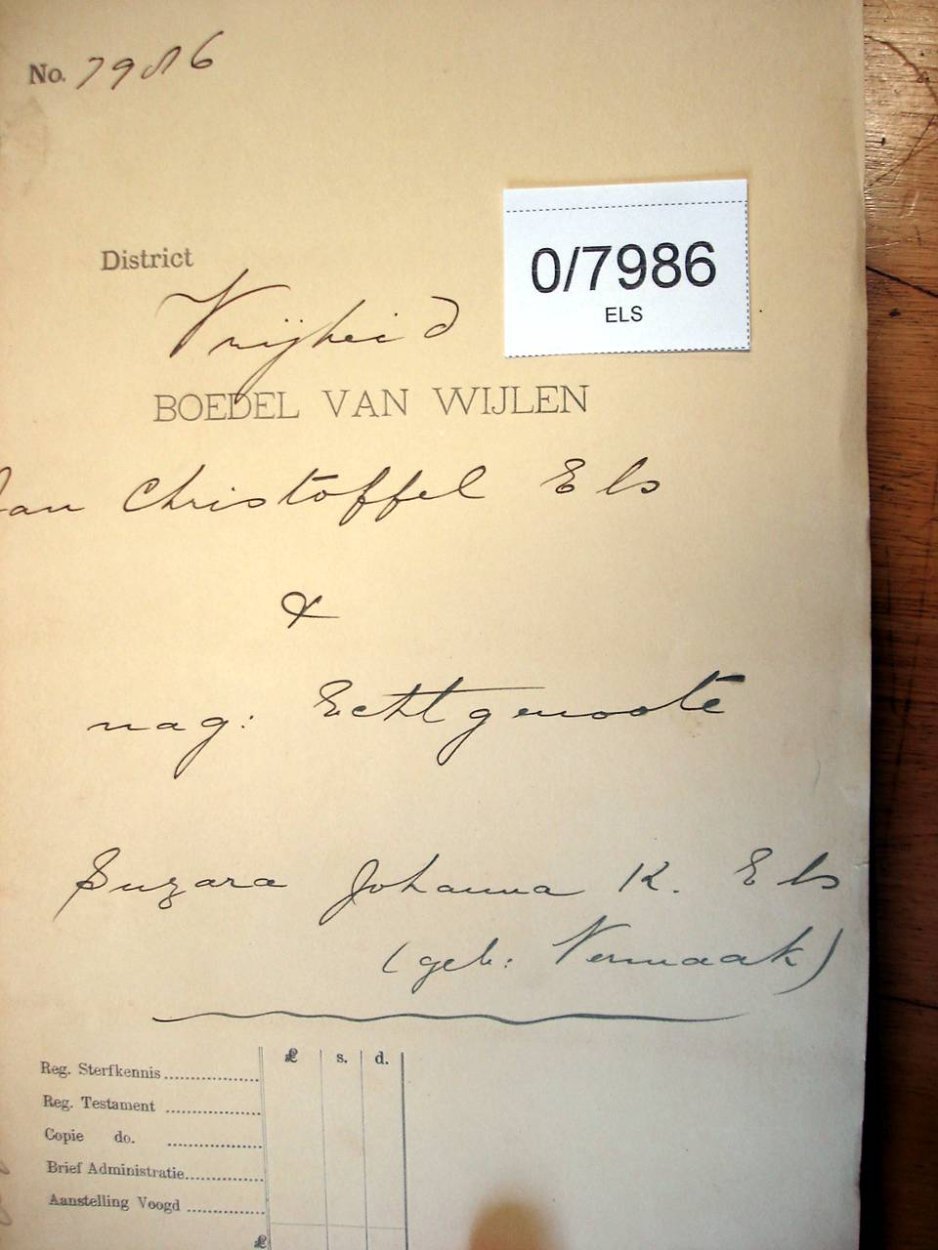 No. 7986
0/7986
ELS
District
Vrijheid
BOEDEL VAN WIJLEN
Jan Christoffel Els
&
nag: Echtgenoote
Suzara Johanna K. Els
(geb: Vermaak)
£ s. d.
Reg. Sterfkennis
Reg. Testament
Copie do.
Brief Administratie
Aanstelling Voogd
£